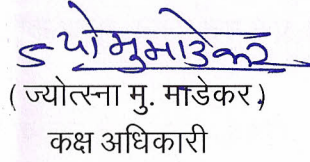 ज्योमुमाडेकर
( ज्योत्स्ना मु. माडेकर.)
कक्ष अधिकारी